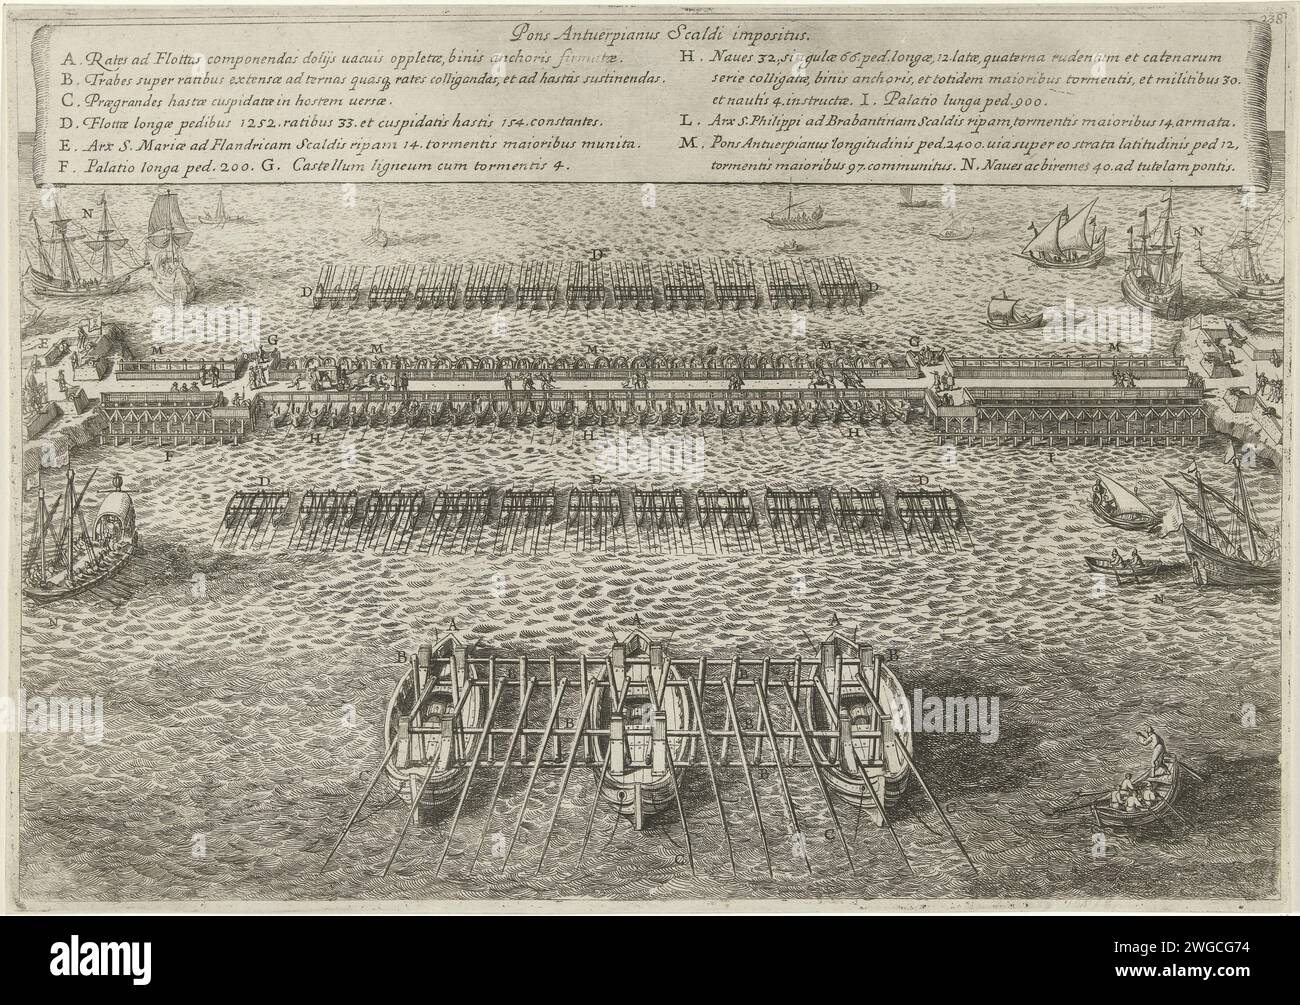 238
Pons Antuerpianus Scaldi impositus.
A. Rates ad Flottas componendas dolijs vacuis oppletæ, binis anchoris firmatæ.
B. Trabes super ratibus extensæ ad ternas quasq, rates colligandas, et ad hastas sustinendas.
C. Prægrandes hastæ cuspidatæ in hostem versæ.
D. Flottæ longæ pedibus 1252. ratibus 33. et cuspidatis hastis 154. constantes.
E. Arx S. Mariæ ad Flandricam Scaldis ripam 14. tormentis maioribus munita.
F. Palatio longa ped. 200. G. Castellum ligneum cum tormentis 4.
H. Naves 32, singulæ 66. ped. longæ, 12. latæ, quaterna rudentum et catenarum
serie colligatæ, binis anchoris, et totidem maioribus tormentis, et militibus 30.
et nautis 4. instructæ. I. Palatio lunga ped. 900.
L. Arx S. Philippi ad Brabantinam Scaldis ripam, tormentis maioribus 14. armata.
M. Pons Antuerpianus longitudinis ped. 2400. via super eo strata latitudinis ped 12,
tormentis maioribus 97. communitus. N. Naves ac biremes 40. ad tutelam pontis.
N
N
D
D D
E M G M M M G M
F H H H I
D D D
N N
A A A
B B B
B B
B
C C C C
alamy
Image ID: 2WGCG74
www.alamy.com